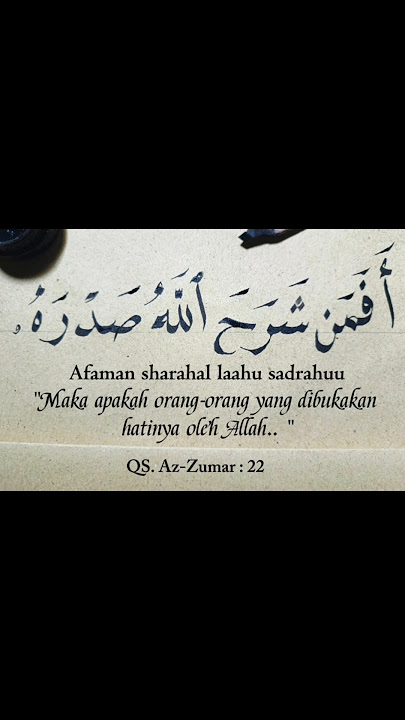 أَفَمَن شَرَحَ ٱللَّهُ صَدْرَهُۥ
Afaman sharahal laahu sadrahuu
"Maka apakah orang-orang yang dibukakan
hatinya oleh Allah.. "
QS. Az-Zumar : 22